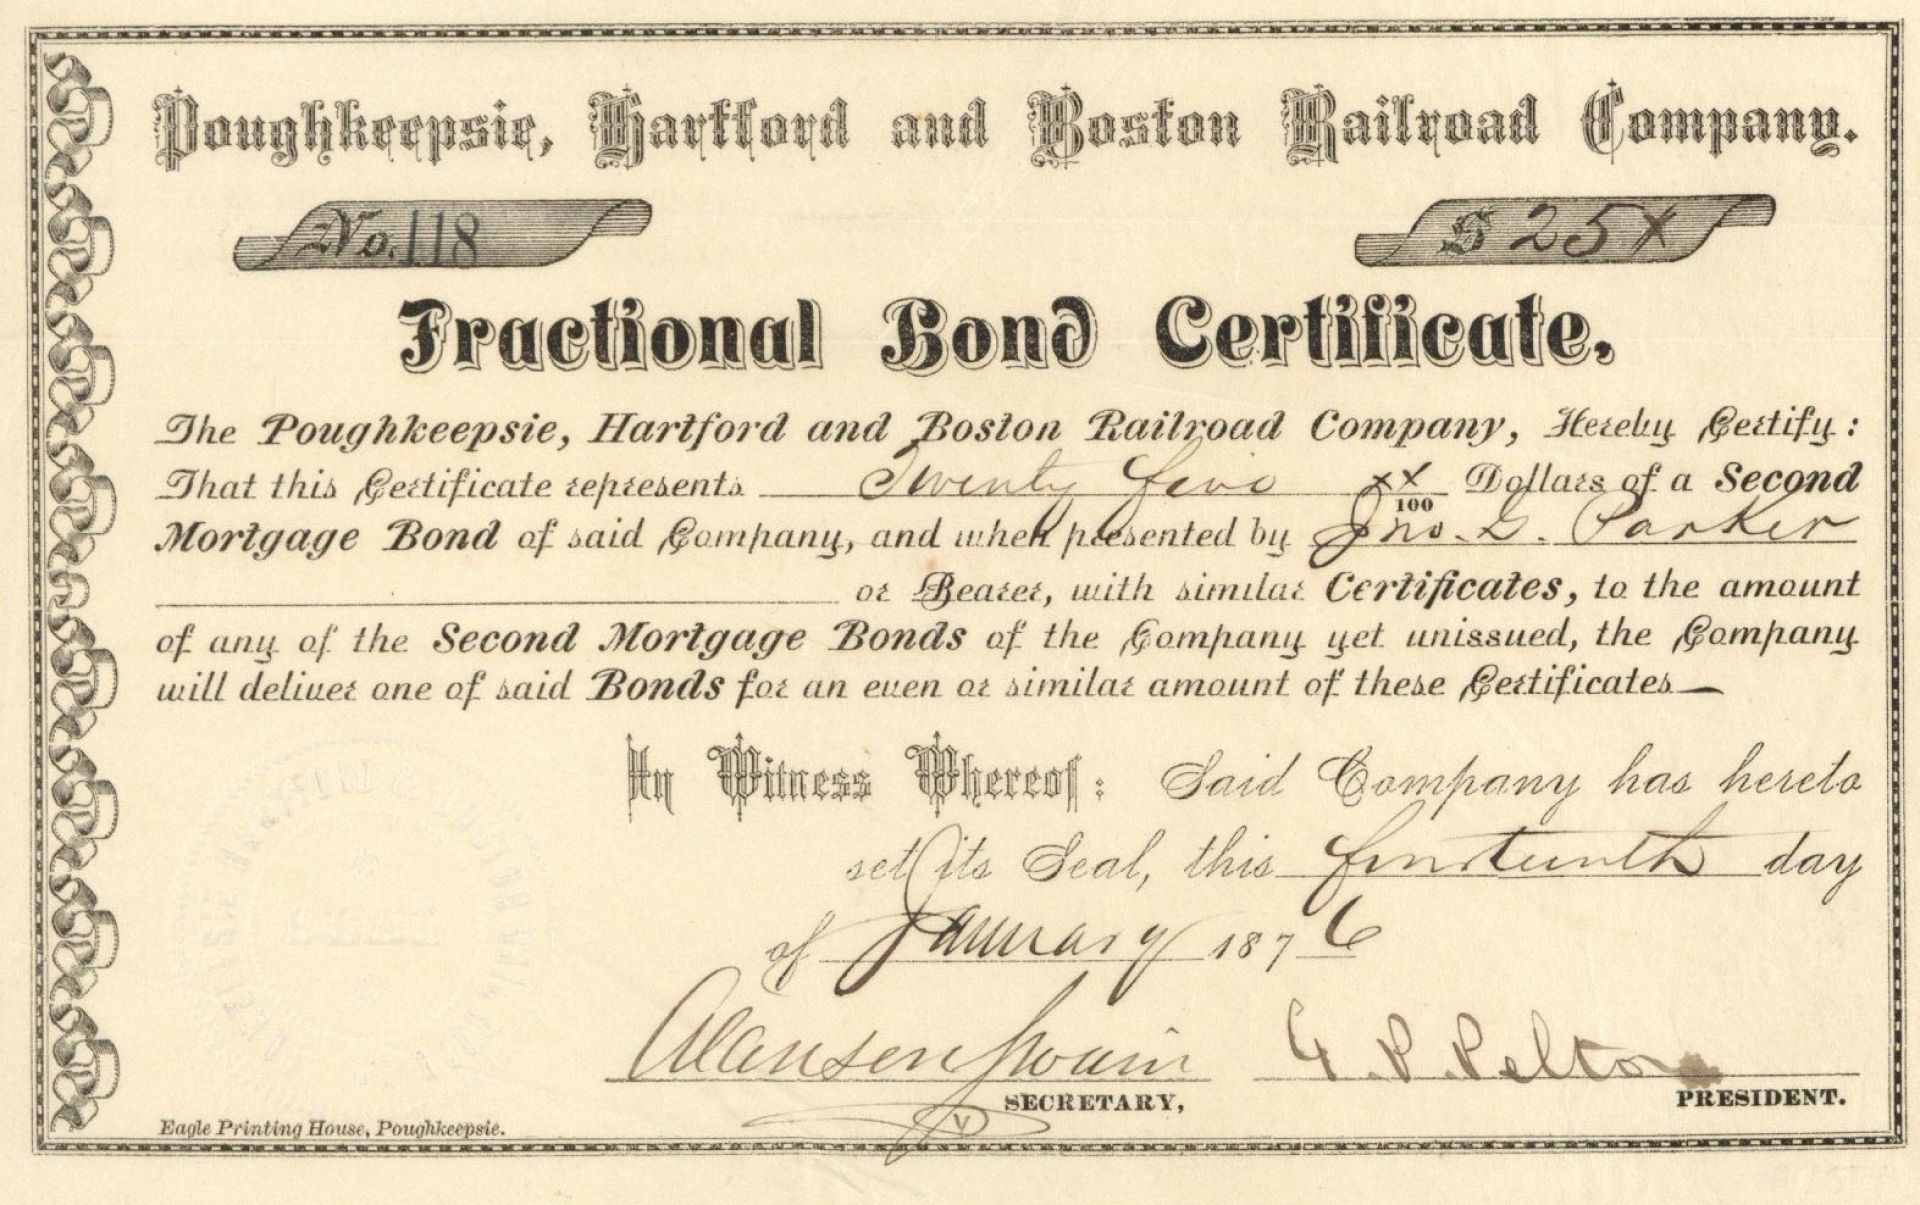 Poughkeepsie, Hartford and Boston Railroad Company.
No. 118
$ 25 x
Fractional Bond Certificate,
The Poughkeepsie, Hartford and Boston Railroad Company, Hereby Certify:
That this Certificate represents Twenty five xx/100 Dollars of a Second
Mortgage Bond of said Company, and when presented by Jno. G. Parker
or Bearer, with similar Certificates, to the amount
of any of the Second Mortgage Bonds of the Company yet unissued, the Company
will deliver one of said Bonds for an even or similar amount of these Certificates—
In Witness Whereof: Said Company has hereto
set its Seal, this fourteenth day
of January 1876
Alanson Swain G. P. Pelton
SECRETARY, PRESIDENT.
Eagle Printing House, Poughkeepsie.